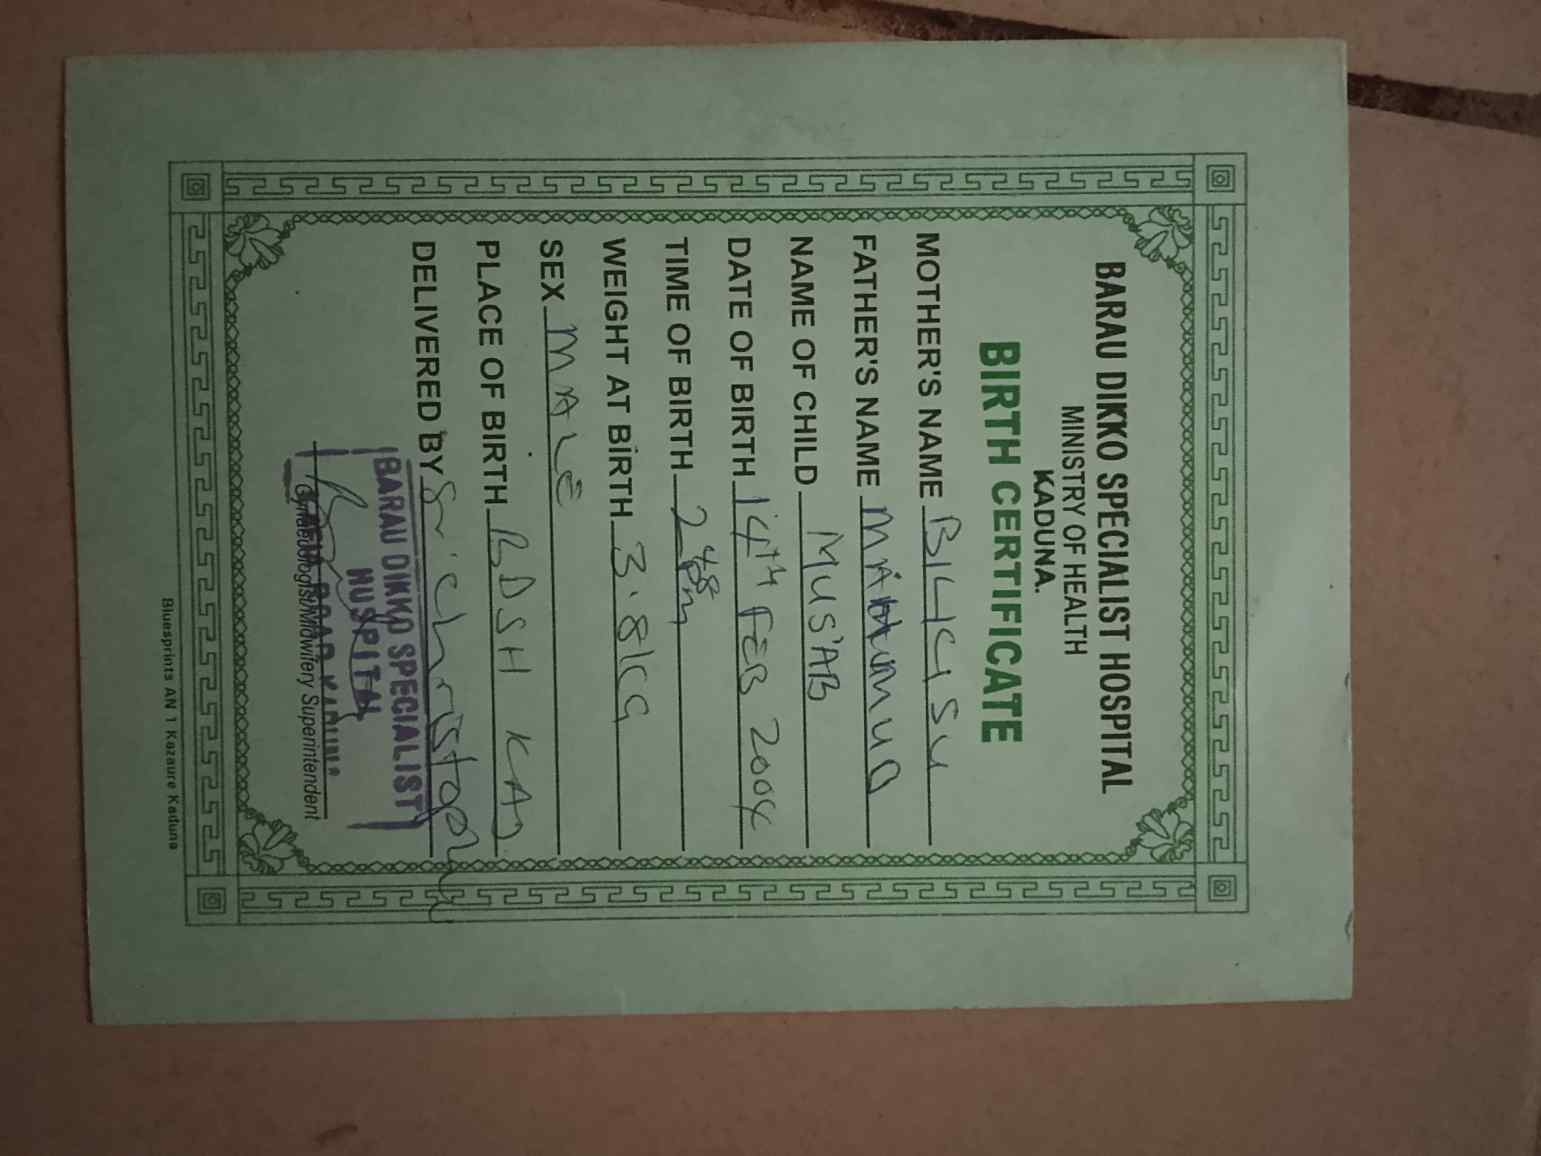 BARAU DIKKO SPECIALIST HOSPITAL
MINISTRY OF HEALTH
KADUNA.
BIRTH CERTIFICATE
MOTHER'S NAME BILKISU
FATHER'S NAME MAHMUD
NAME OF CHILD MUS'AB
DATE OF BIRTH 14TH FEB 2004
TIME OF BIRTH 2 48 pm
WEIGHT AT BIRTH 3.8KG
SEX MALE
PLACE OF BIRTH BDSH KAD
DELIVERED BY Sr christopher
BARAU DIKKO SPECIALIST
HOSPITAL
Gynaecologist/Midwifery Superintendent
Bluesprints AN 1 Kazaure Kaduna